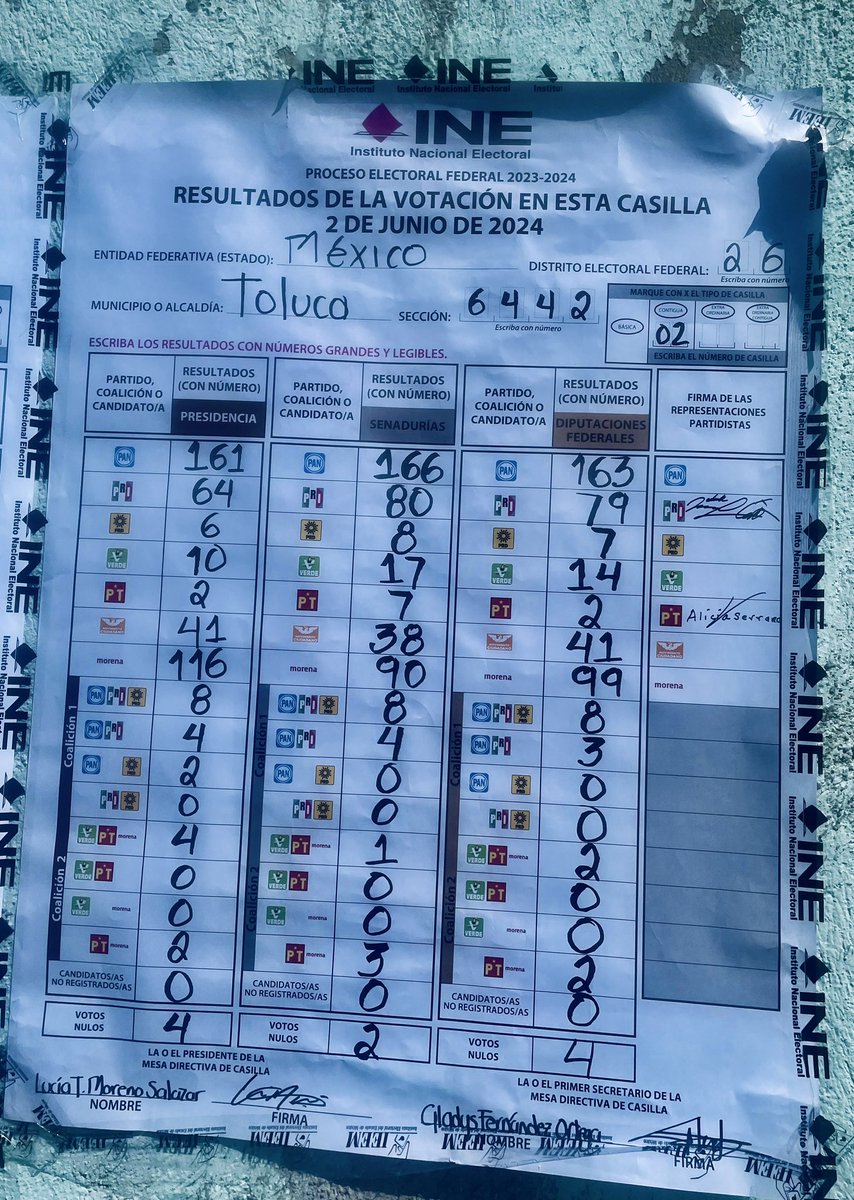 INE INE
Instituto Nacional Electoral Instituto Nacional Electoral
INE
Instituto Nacional Electoral
PROCESO ELECTORAL FEDERAL 2023-2024
RESULTADOS DE LA VOTACIÓN EN ESTA CASILLA
2 DE JUNIO DE 2024
ENTIDAD FEDERATIVA (ESTADO): México DISTRITO ELECTORAL FEDERAL: 26
Escriba con número
MUNICIPIO O ALCALDÍA: Toluca SECCIÓN: 6442
Escriba con número
MARQUE CON X EL TIPO DE CASILLA
BÁSICA CONTIGUA EXTRA ORDINARIA EXTRA ORDINARIA CONTIGUA
02
ESCRIBA EL NÚMERO DE CASILLA
ESCRIBA LOS RESULTADOS CON NÚMEROS GRANDES Y LEGIBLES.
PARTIDO, COALICIÓN O CANDIDATO/A RESULTADOS (CON NÚMERO) PRESIDENCIA PARTIDO, COALICIÓN O CANDIDATO/A RESULTADOS (CON NÚMERO) SENADURÍAS PARTIDO, COALICIÓN O CANDIDATO/A RESULTADOS (CON NÚMERO) DIPUTACIONES FEDERALES FIRMA DE LAS REPRESENTACIONES PARTIDISTAS
PAN 161 PAN 166 PAN 163 PAN
PRI 64 PRI 80 PRI 79 PRI
PRD 6 PRD 8 PRD 7 PRD
VERDE 10 VERDE 17 VERDE 14 VERDE
PT 2 PT 7 PT 2 PT Alicia Serrano
MOVIMIENTO CIUDADANO 41 MOVIMIENTO CIUDADANO 38 MOVIMIENTO CIUDADANO 41
morena 116 morena 90 morena 99 morena
Coalición 1 PAN PRI PRD 8 Coalición 1 PAN PRI PRD 8 Coalición 1 PAN PRI PRD 8
PAN PRI 4 PAN PRI 4 PAN PRI 3
PAN PRD 2 PAN PRD 0 PAN PRD 0
PRI PRD 0 PRI PRD 0 PRI PRD 0
Coalición 2 VERDE PT morena 4 Coalición 2 VERDE PT morena 1 Coalición 2 VERDE PT morena 2
VERDE PT 0 VERDE PT 0 VERDE PT 0
VERDE morena 0 VERDE morena 0 VERDE morena 0
PT morena 2 PT morena 3 PT morena 2
CANDIDATOS/AS NO REGISTRADOS/AS 0 CANDIDATOS/AS NO REGISTRADOS/AS 0 CANDIDATOS/AS NO REGISTRADOS/AS 0
VOTOS NULOS 4 VOTOS NULOS 2 VOTOS NULOS 4
LA O EL PRESIDENTE DE LA MESA DIRECTIVA DE CASILLA
LA O EL PRIMER SECRETARIO DE LA MESA DIRECTIVA DE CASILLA
Lucía T. Moreno Salazar
NOMBRE FIRMA
Gladys Fernández Ortega
NOMBRE FIRMA
IEEM